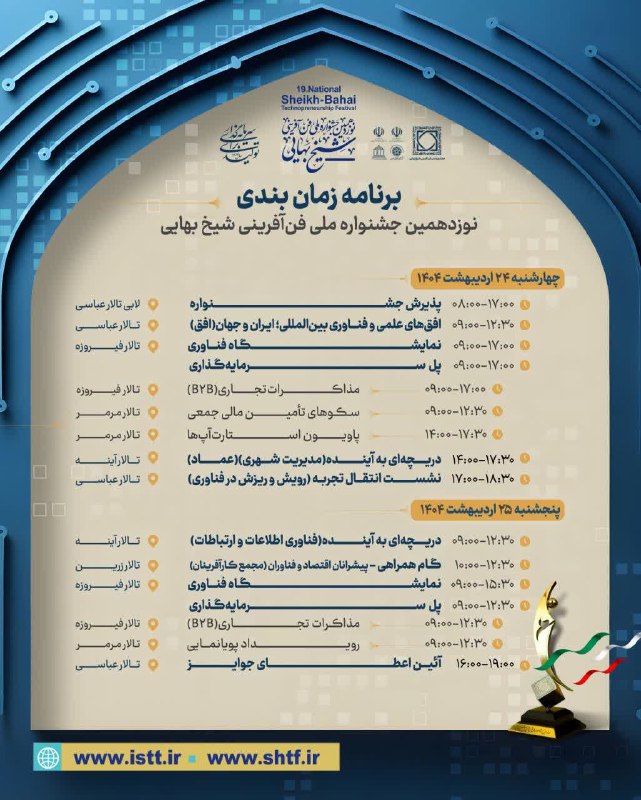 19.National
Sheikh-Bahai
Technopreneurship Festival
نوزدهمین جشنواره ملی فن‌آفرینی
شیخ بهائی
برنامه زمان بندی
نوزدهمین جشنواره ملی فن‌آفرینی شیخ بهایی
چهارشنبه ۲۴ اردیبهشت ۱۴۰۴
۰۸:۰۰-۱۷:۰۰ پذیرش جشنواره لابی تالار عباسی
۰۹:۰۰-۱۲:۳۰ افق‌های علمی و فناوری بین‌المللی؛ ایران و جهان(افق) تالار عباسی
۰۹:۰۰-۱۷:۰۰ نمایشگاه فناوری تالار فیروزه
۰۹:۰۰-۱۷:۰۰ پل سرمایه‌گذاری
۰۹:۰۰-۱۷:۰۰ مذاکرات تجاری(B2B) تالار فیروزه
۰۹:۰۰-۱۲:۳۰ سکوهای تأمین مالی جمعی تالار مرمر
۱۴:۰۰-۱۷:۳۰ پاویون استارت‌آپ‌ها تالار مرمر
۱۴:۰۰-۱۷:۳۰ دریچه‌ای به آینده(مدیریت شهری)(عماد) تالار آینه
۱۷:۰۰-۱۸:۳۰ نشست انتقال تجربه (رویش و ریزش در فناوری) تالار عباسی
پنجشنبه ۲۵ اردیبهشت ۱۴۰۴
۰۹:۰۰-۱۲:۳۰ دریچه‌ای به آینده(فناوری اطلاعات و ارتباطات) تالار آینه
۱۰:۰۰-۱۲:۳۰ گام همراهی - پیشرانان اقتصاد و فناوران (مجمع کارآفرینان) تالار زرین
۰۹:۰۰-۱۵:۳۰ نمایشگاه فناوری تالار فیروزه
۰۹:۰۰-۱۲:۳۰ پل سرمایه‌گذاری
۰۹:۰۰-۱۲:۳۰ مذاکرات تجاری(B2B) تالار فیروزه
۰۹:۰۰-۱۲:۳۰ رویداد پویانمایی تالار مرمر
۱۶:۰۰-۱۹:۰۰ آئین اعطای جوایز تالار عباسی
www.istt.ir www.shtf.ir